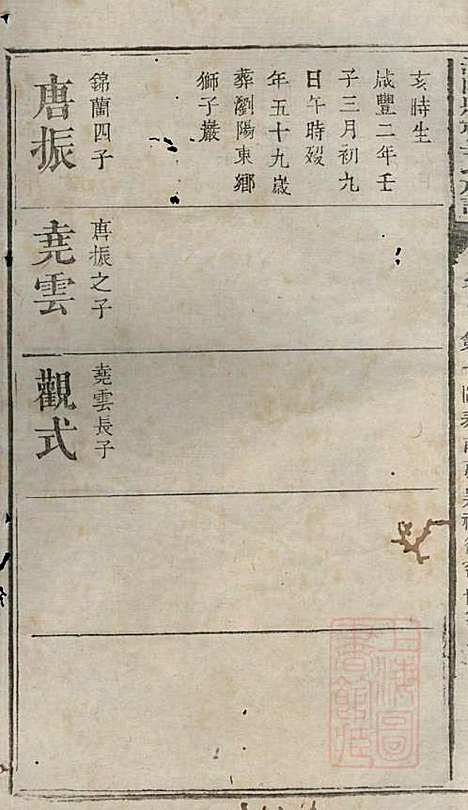 亥時生
咸豐二年壬
子三月初九
日午時殁
年五十九歲
葬瀏陽東鄉
獅子巖
錦蘭四子
唐振
唐振之子
堯雲
堯雲長子
觀式
上海圖
書館臧